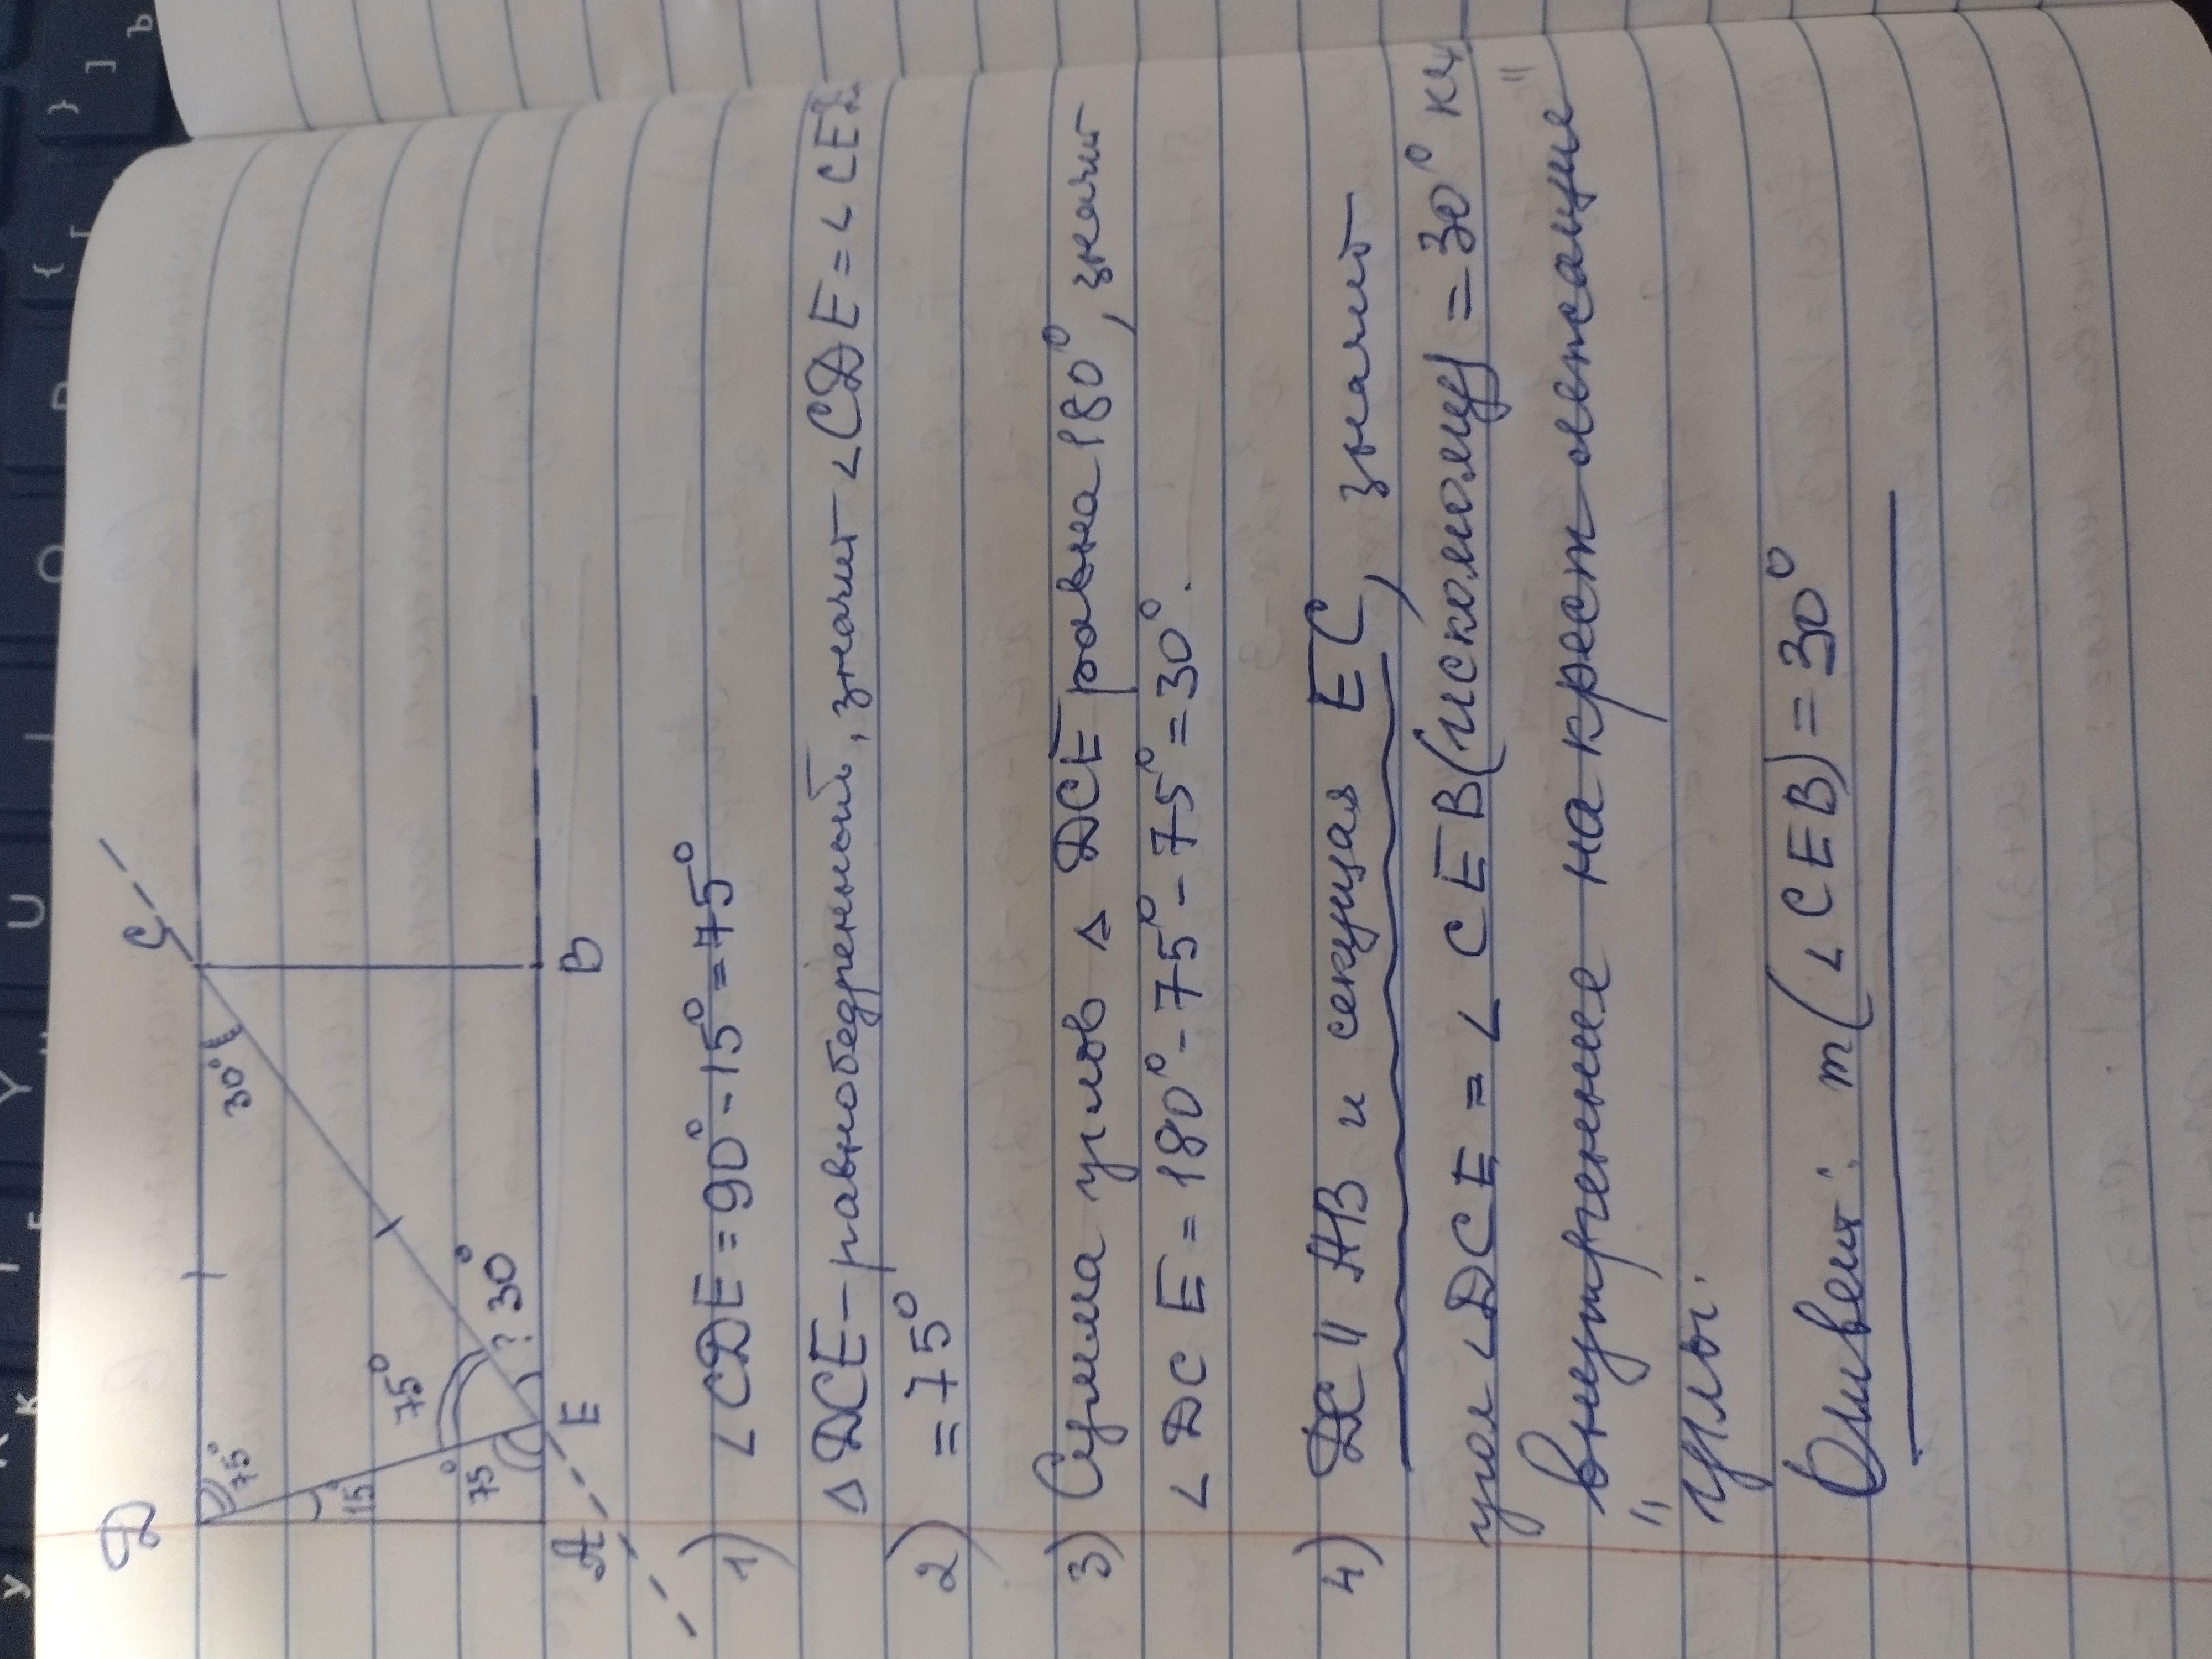 D
C
75°
30°
15°
75°
75°
? 30°
A
E
B
1) ∠CDE = 90° - 15° = 75°
△DCE - равнобедренный, значит ∠CDE = ∠CED
2) = 75°
3) Сумма углов △ DCE равна 180°, значит
∠DCE = 180° - 75° - 75° = 30°.
4) DC || AB и секущая EC, значит
угол ∠DCE = ∠CEB (искомому) = 30° как
"внутренние накрест лежащие"
углы.
Ответ: m(∠CEB) = 30°